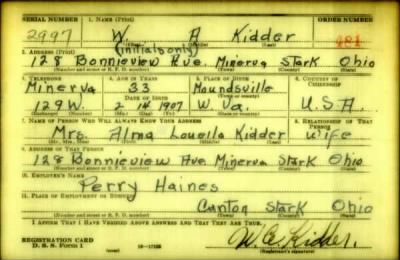 SERIAL NUMBER 1. NAME (Print) ORDER NUMBER
2997 W. A Kidder 481
(Initials only)
2. ADDRESS (Print)
128 Bonnieview Ave. Minerva Stark Ohio
(Number and street or R. F. D. number)
3. TELEPHONE 4. AGE IN YEARS 5. PLACE OF BIRTH 6. COUNTRY OF CITIZENSHIP
Minerva 33 Moundsville
DATE OF BIRTH
129W. 2 14 1907 W. Va. U.S.A.
7. NAME OF PERSON WHO WILL ALWAYS KNOW YOUR ADDRESS 8. RELATIONSHIP OF THAT PERSON
Mrs. Alma Louella Kidder Wife
9. ADDRESS OF THAT PERSON
128 Bonnieview Ave. Minerva Stark Ohio
(Number and street or R. F. D. number)
10. EMPLOYER'S NAME
Perry Haines
11. PLACE OF EMPLOYMENT OR BUSINESS
Canton Stark Ohio
(Number and street or R. F. D. number) (Town) (County) (State)
I AFFIRM THAT I HAVE VERIFIED ABOVE ANSWERS AND THAT THEY ARE TRUE.
REGISTRATION CARD
D. S. S. FORM 1
W. A. Kidder.
(Registrant's signature)